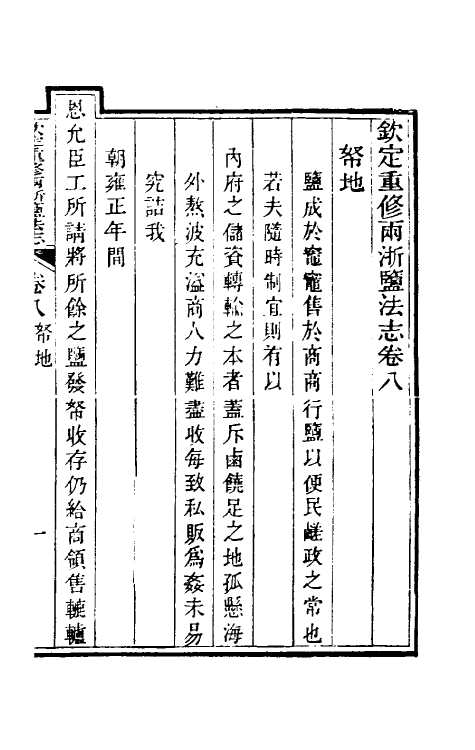 欽定重修兩浙鹽法志卷八
帑地
鹽成於竈竈售於商商行鹽以便民鹺政之常也
若夫隨時制宜則有以
內府之儲資轉輸之本者蓋斥鹵饒足之地孤懸海
外熬波充溢商人力難盡收每致私販爲姦未易
究詰我
朝雍正年間
恩允臣工所請將所餘之鹽發帑收存仍給商領售轆轤
欽定重修兩浙鹽法志 卷八 帑地 一